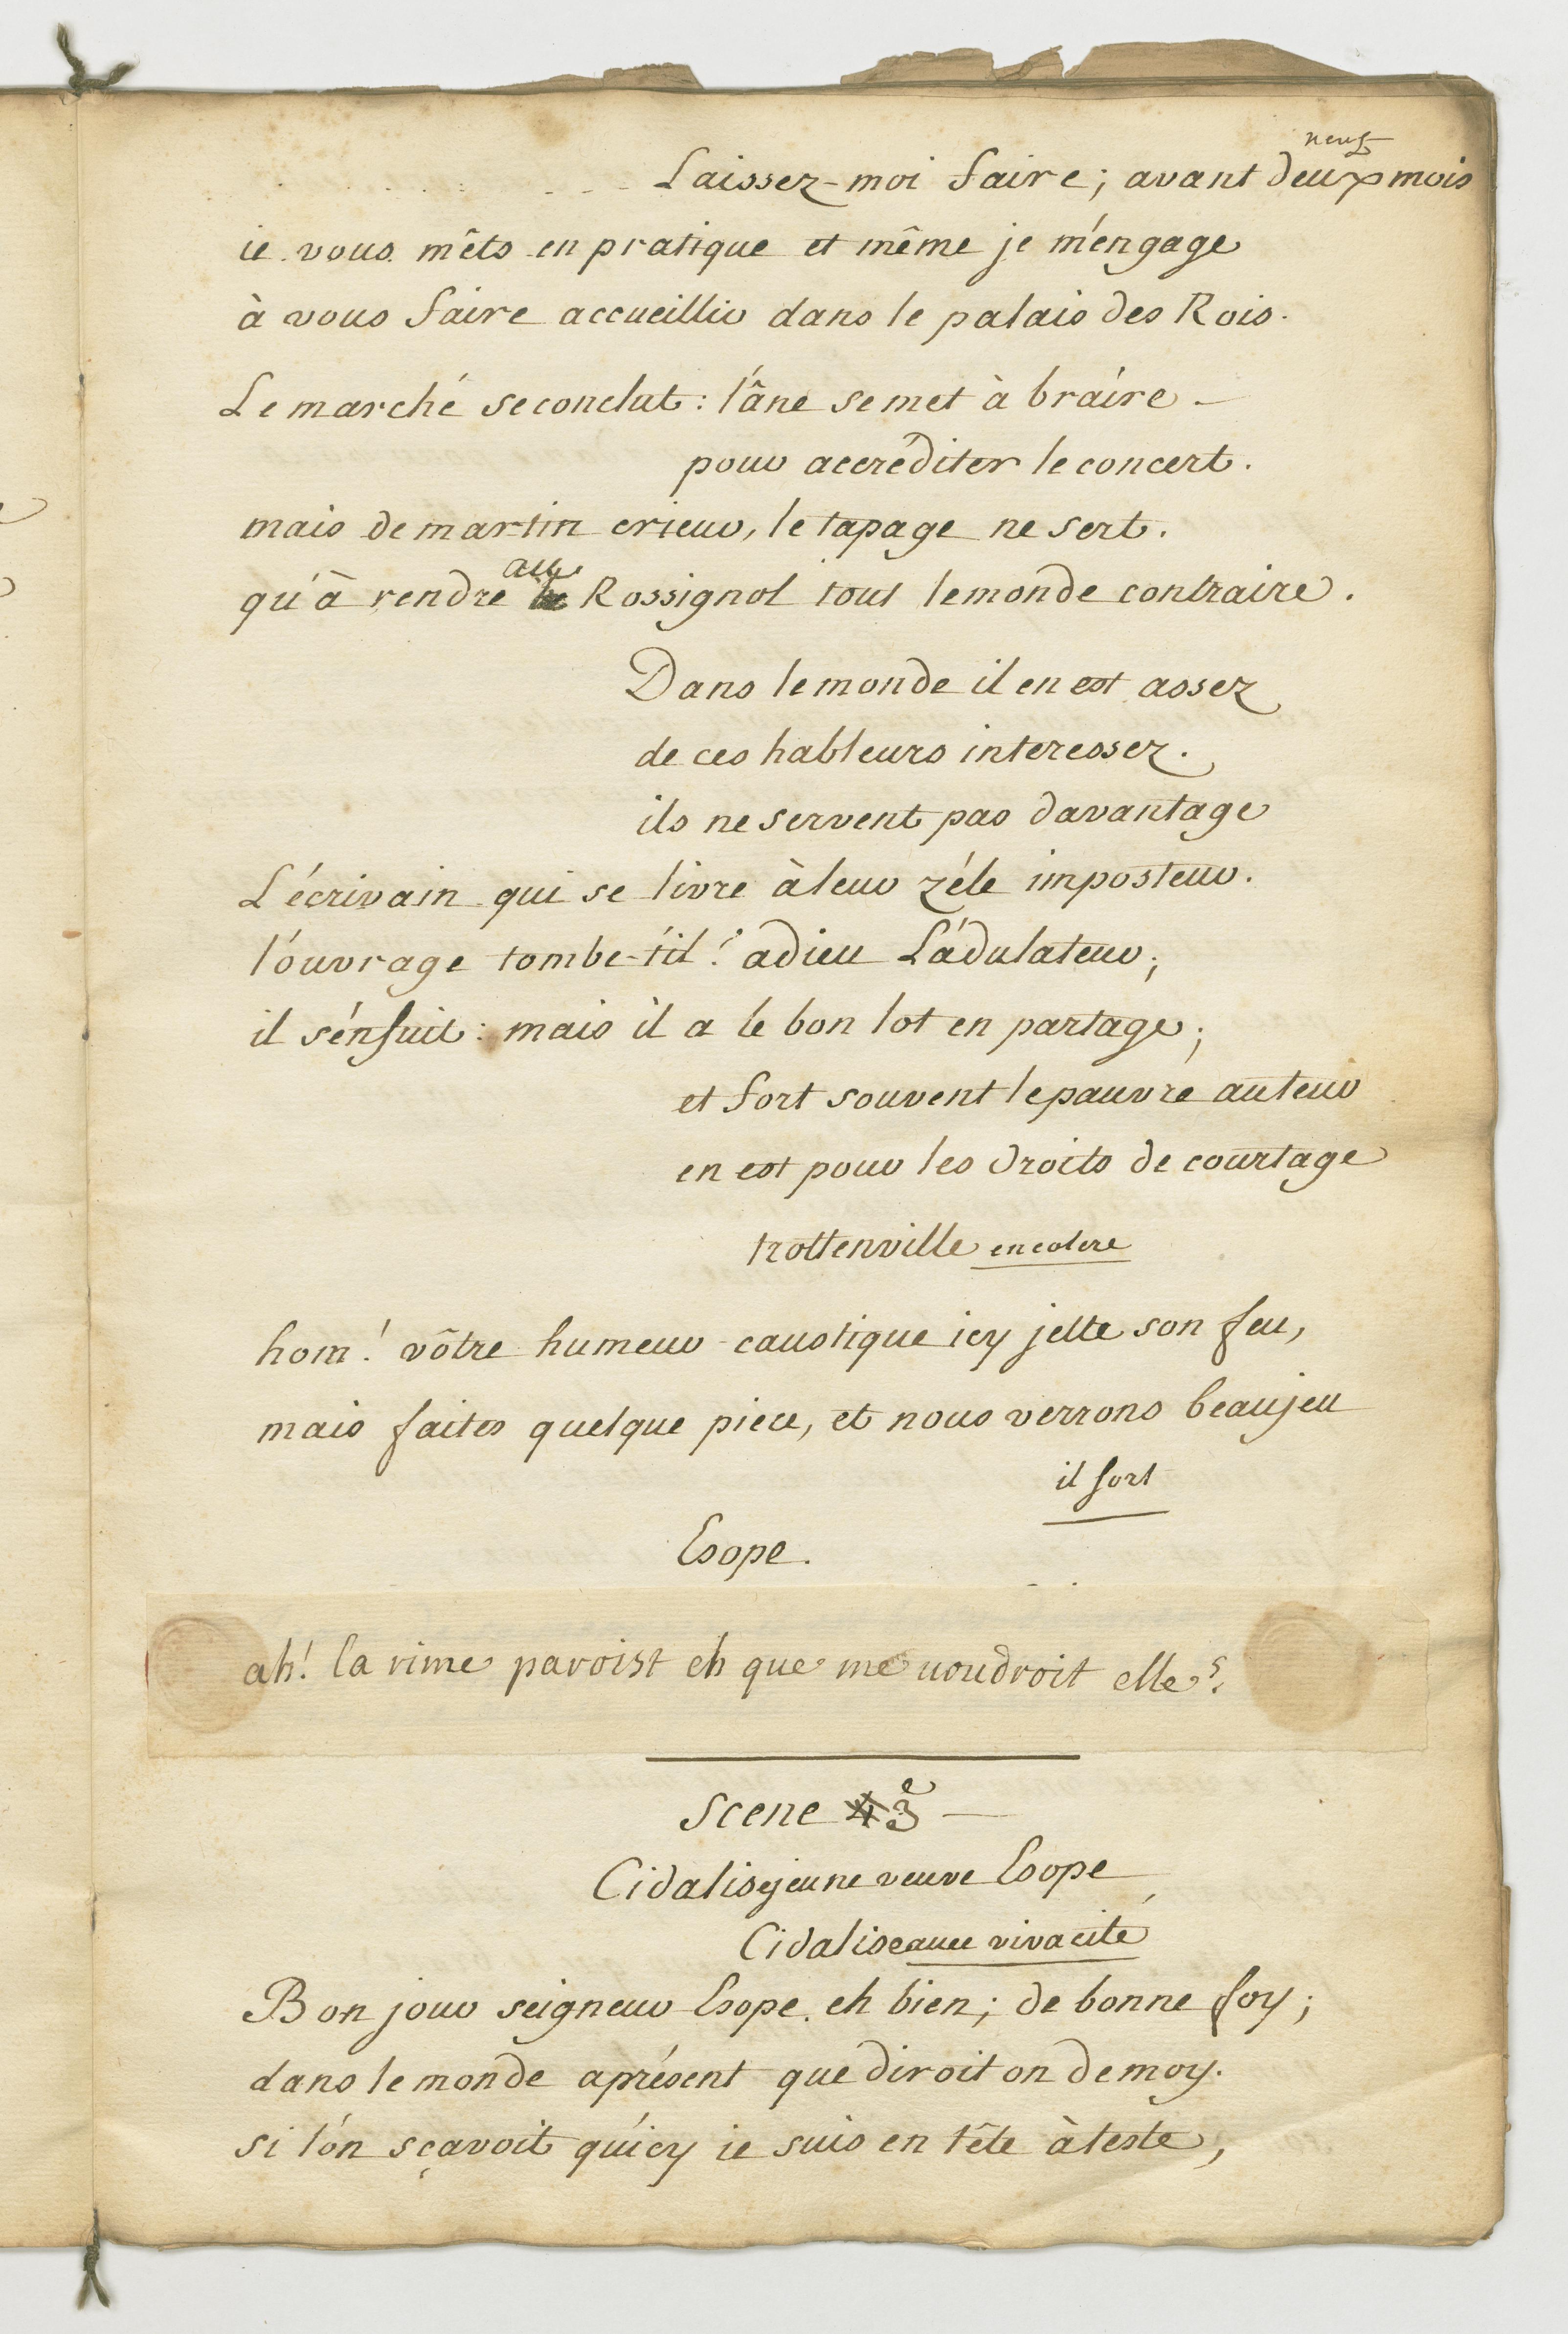 neuf
Laissez-moi faire; avant deux mois
ie vous mêts en pratique et même je m'engage
à vous faire accueillir dans le palais des Rois.
Le marché se conclut: l'âne se met à braire -
pour accréditer le concert.
mais de martin crieur, le tapage ne sert.
au
qu'à rendre le Rossignol tout le monde contraire.
Dans le monde il en est assez
de ces hableurs interessez.
ils ne servent pas davantage
L'écrivain qui se livre à leur zéle imposteur.
l'ouvrage tombe-t'il? adieu L'adulateur;
il s'enfuit: mais il a le bon lot en partage;
et fort souvent le pauvre auteur
en est pour les droits de courtage
trottenville en colere
hom! vôtre humeur caustique icy jette son feu,
mais faites quelque piece, et nous verrons beau jeu
il sort
Esope.
ah! la rime paroist eh que me voudroit elle?
Scene 4 3e
Cidalise jeune veuve Esope
Cidalise avec vivacité
Bon jour seigneur Esope. eh bien; de bonne foy;
dans le monde aprésent que diroit on de moy.
si l'on sçavoit qu'icy ie suis en tête à teste,